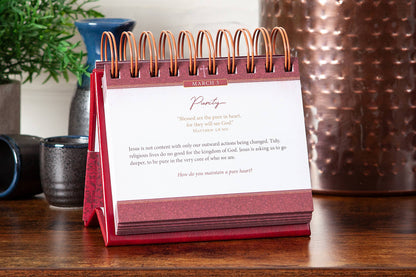 MARCH 5
Purity
"Blessed are the pure in heart,
for they will see God."
Matthew
Jesus is not content with only our outward actions being changed. Tidy,
religious lives do no good for the kingdom of God. Jesus is asking us to go
deeper, to be pure in the very core of who we are.
How do you maintain a pure heart?